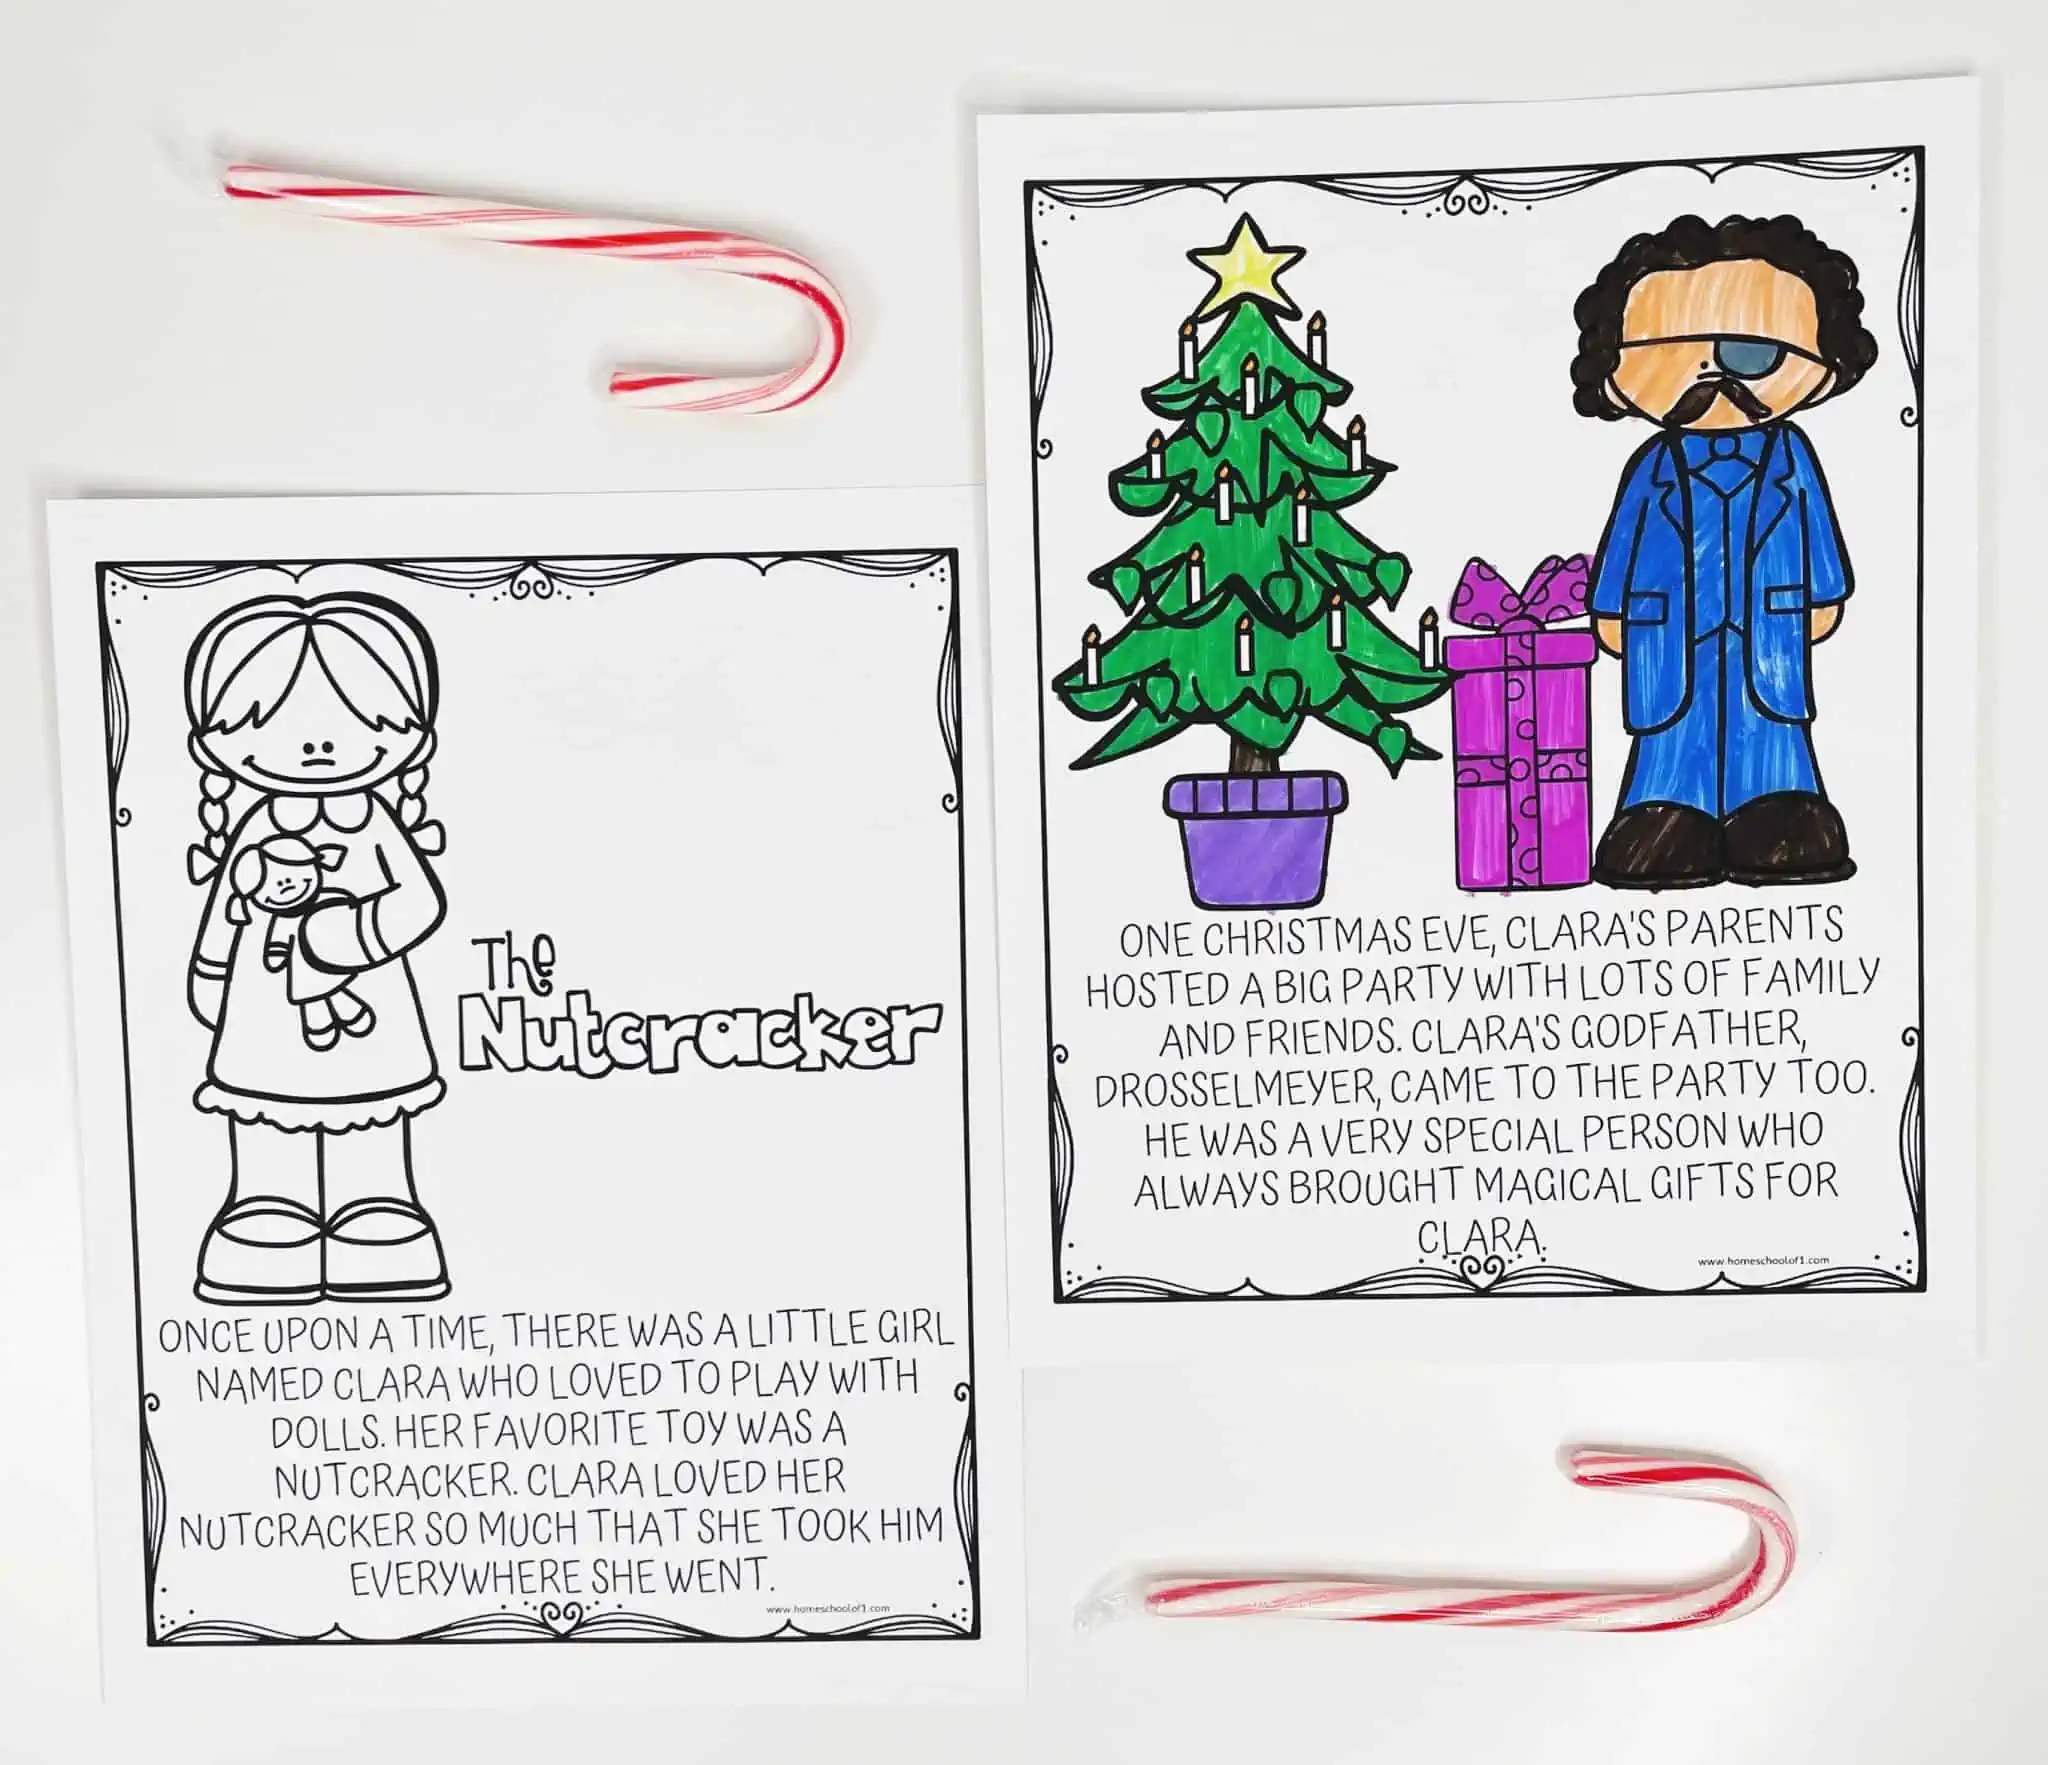 The
Nutcracker
ONCE UPON A TIME, THERE WAS A LITTLE GIRL
NAMED CLARA WHO LOVED TO PLAY WITH
DOLLS. HER FAVORITE TOY WAS A
NUTCRACKER. CLARA LOVED HER
NUTCRACKER SO MUCH THAT SHE TOOK HIM
EVERYWHERE SHE WENT.
www.homeschoolof1.com
ONE CHRISTMAS EVE, CLARA'S PARENTS
HOSTED A BIG PARTY WITH LOTS OF FAMILY
AND FRIENDS. CLARA'S GODFATHER,
DROSSELMEYER, CAME TO THE PARTY TOO.
HE WAS A VERY SPECIAL PERSON WHO
ALWAYS BROUGHT MAGICAL GIFTS FOR
CLARA.
www.homeschoolof1.com